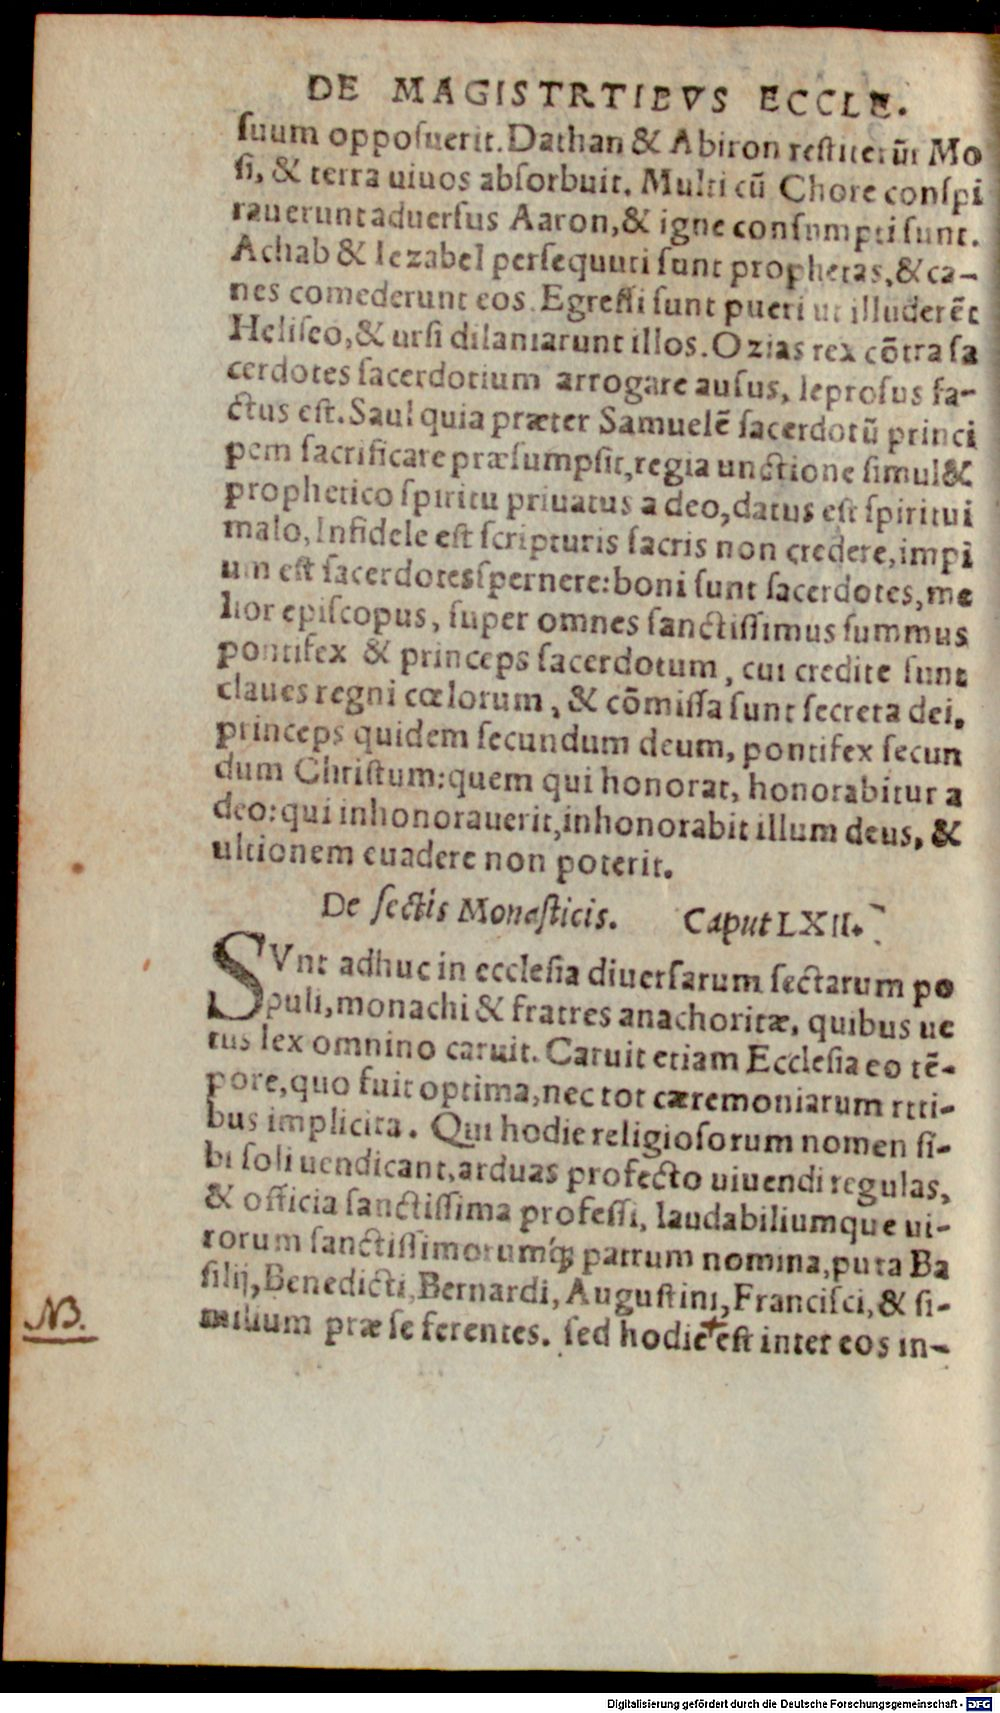 DE MAGISTRTIBVS ECCLE.
ſuum oppoſuerit. Dathan & Abiron reſtiterūt Mo
ſi, & terra uiuos abſorbuit. Multi cū Chore conſpi
rauerunt aduerſus Aaron, & igne conſumpti ſunt.
Achab & Iezabel perſequuti ſunt prophetas, & ca-
nes comederunt eos. Egreſſi ſunt pueri ut illuderēt
Heliſeo, & urſi dilaniarunt illos. Ozias rex cōtra ſa
cerdotes ſacerdotium arrogare auſus, leproſus fa-
ctus eſt. Saul quia præter Samuelē ſacerdotū princi
pem ſacrificare præſumpſit, regia unctione ſimul &
prophetico ſpiritu priuatus a deo, datus eſt ſpiritui
malo, Infidele eſt ſcripturis ſacris non credere, impi
um eſt ſacerdotes ſpernere: boni ſunt ſacerdotes, me
lior epiſcopus, ſuper omnes ſanctiſſimus ſummus
pontifex & princeps ſacerdotum, cui credite ſunt
claues regni cœlorum, & cōmiſſa ſunt ſecreta dei.
princeps quidem ſecundum deum, pontifex ſecun
dum Chriſtum: quem qui honorat, honorabitur a
deo: qui inhonorauerit, inhonorabit illum deus, &
ultionem euadere non poterit.
De ſectis Monaſticis. Caput LXII.
SVnt adhuc in eccleſia diuerſarum ſectarum po
puli, monachi & fratres anachoritæ, quibus ue
tus lex omnino caruit. Caruit etiam Eccleſia eo tē-
pore, quo fuit optima, nec tot cæremoniarum rtti-
bus implicita. Qui hodie religioſorum nomen ſi-
bi ſoli uendicant, arduas profecto uiuendi regulas,
& officia ſanctiſſima profeſſi, laudabiliumque ui-
rorum ſanctiſſimorumq́ꝫ patrum nomina, puta Ba
ſilij, Benedicti, Bernardi, Auguſtini, Franciſci, & ſi-
milium præ ſe ferentes. ſed hodie + eſt inter eos in-
NB.
Digitalisierung gefördert durch die Deutsche Forschungsgemeinschaft - DFG